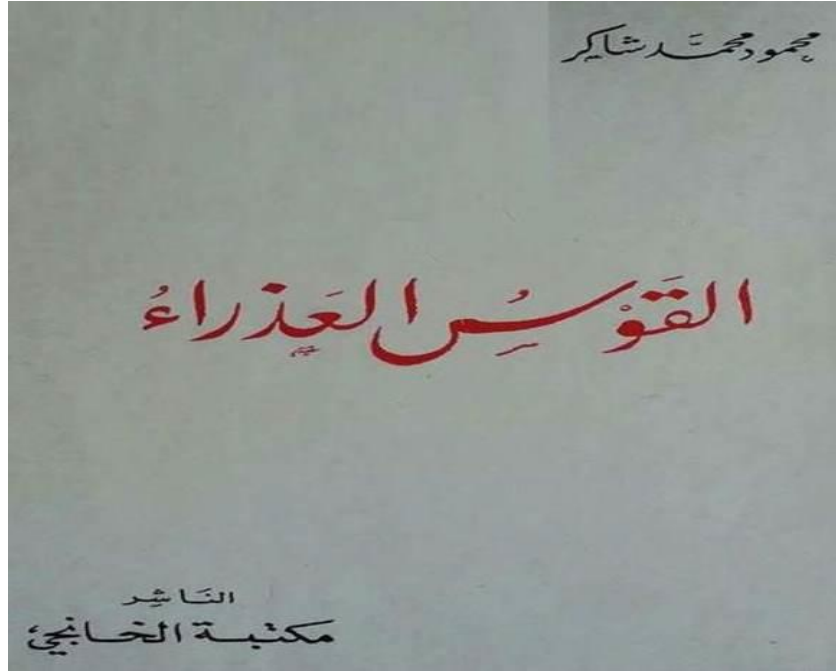 محمود محمد شاكر
القَوْسُ العَذراءُ
النَاشِر
مكتبة الخانجي